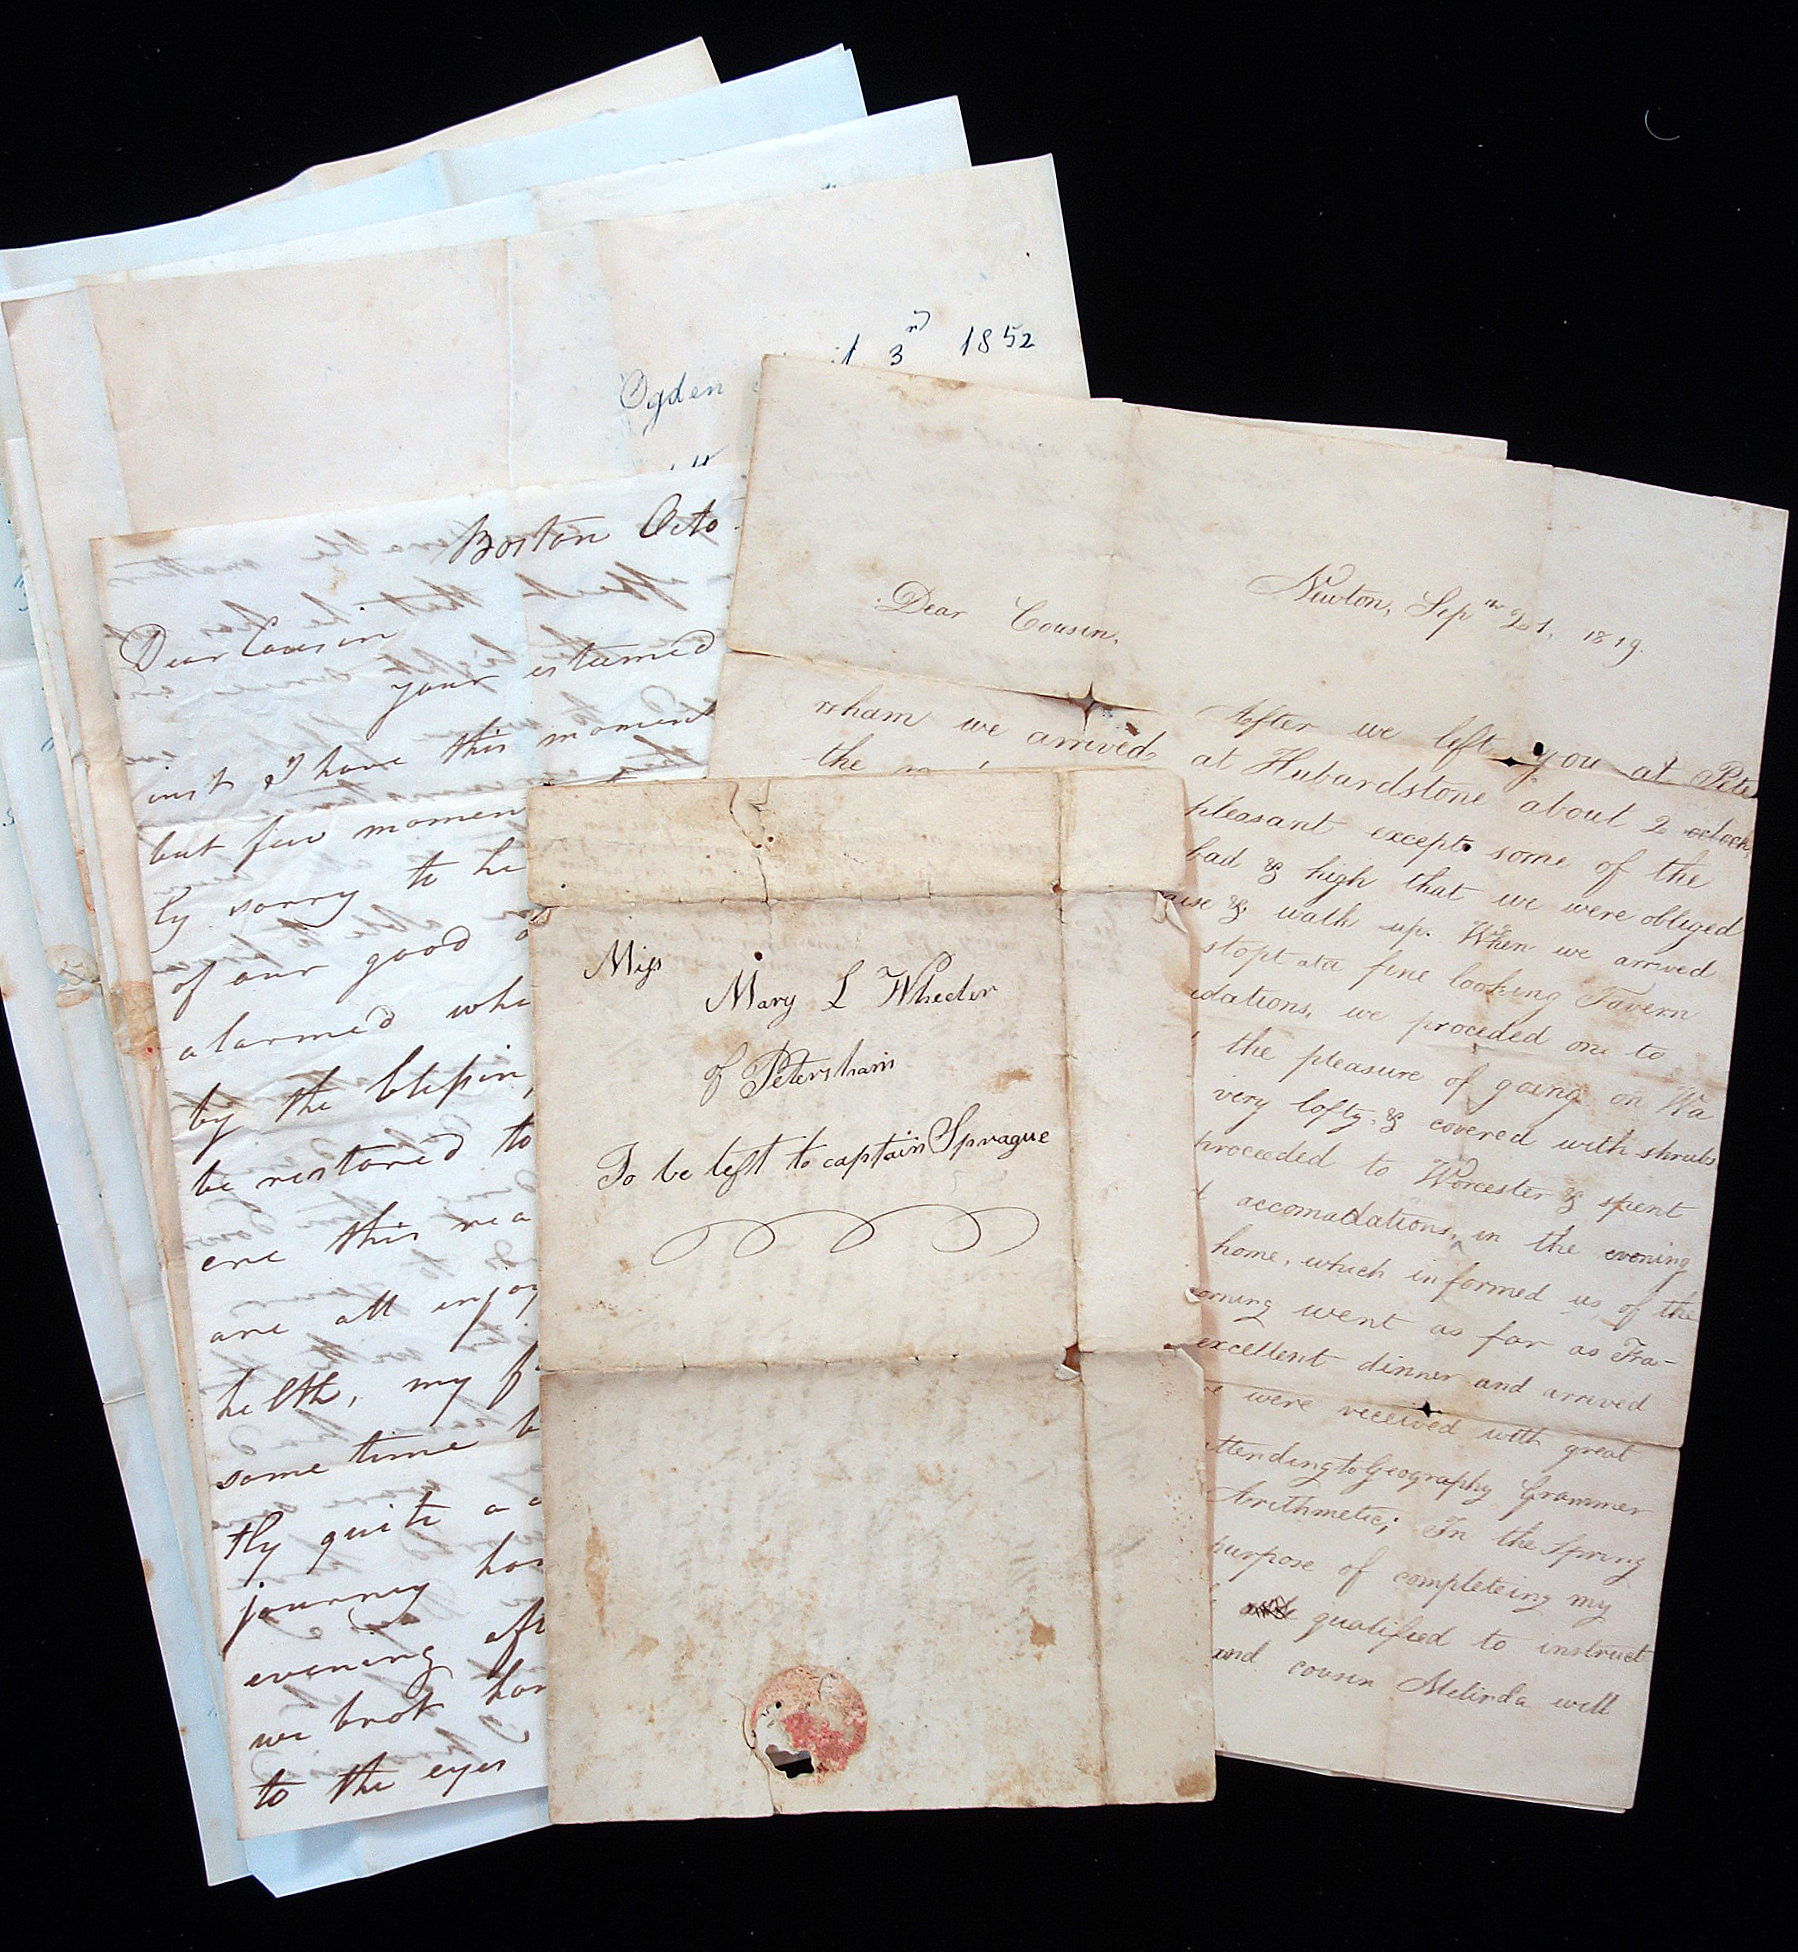 Ogden
3rd 1852
Boston Octo
Dear Cousin
your esteemed
inst I have this moment
but few momen
ly sorry to he
of our good
alarmed whe
by the blessin
be restored to
ere this rea
are all enjoy
helth, my f
some time b
tly quite a
journey ho
evening aft
we brot hor
to the eyes
Newton, Septh 21, 1819.
Dear Cousin,
After we left you at Pete
rsham we arrived at Hubardstone about 2 oclock,
the
pleasant except some of the
bad & high that we were obliged
aise & walk up. When we arrived
stopt at a fine looking Tavern
dations, we proceded on to
the pleasure of going on Wa
very lofty & covered with shrubs
proceeded to Worcester & spent
accomadations, in the evening
home, which informed us of the
orning went as far as Fra-
excellent dinner and arrived
were received with great
ttending to Geography Grammer
Arithmetic; In the Spring
purpose of completeing my
qualified to instruct
and cousin Melinda well
Miss
Mary L Wheeler
of Petersham
To be left to captain Sprague